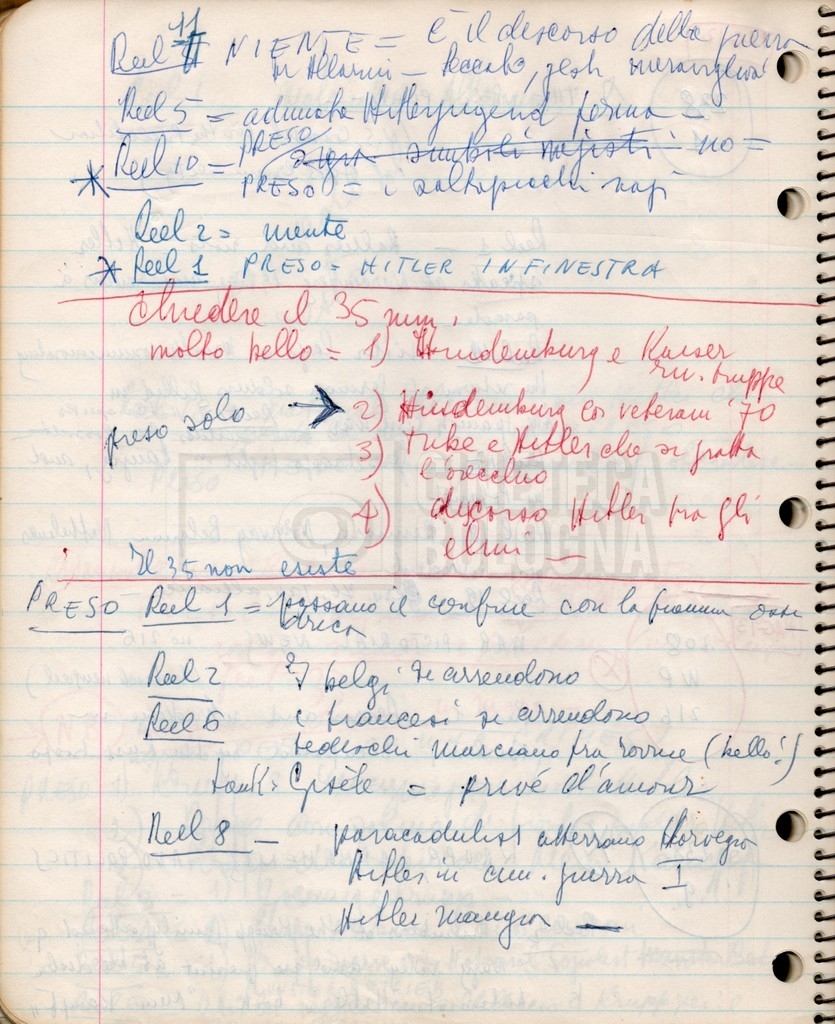 Reel 11 NIENTE = è il discorso della guerra
in Peccato, gesti
Reel 5 = adunata Hitlerjugend
* Reel 10 = PRESO simboli nazisti no =
PRESO = i salvapiedi nazi
Reel 2 = niente
* Reel 1 PRESO = HITLER IN FINESTRA
chiedere il 35 mm.
molto bello = 1) Hindemburg e Kaiser
riv. truppe
preso solo → 2) Hindemburg con veterani '70
3) e Hitler che si gratta
l'orecchio
4) discorso Hitler fra gli
elmi —
CINETECA
BOLOGNA
Il 35 non esiste
PRESO Reel 1 = passano il confine con la
Reel 2 i belgi si arrendono
Reel 6 i francesi si arrendono
tedeschi marciano fra rovine (bello!)
tank = = privé d'amour
Reel 8 — paracadutisti atterrano Norvegia
Hitler in guerra I
Hitler mangia —